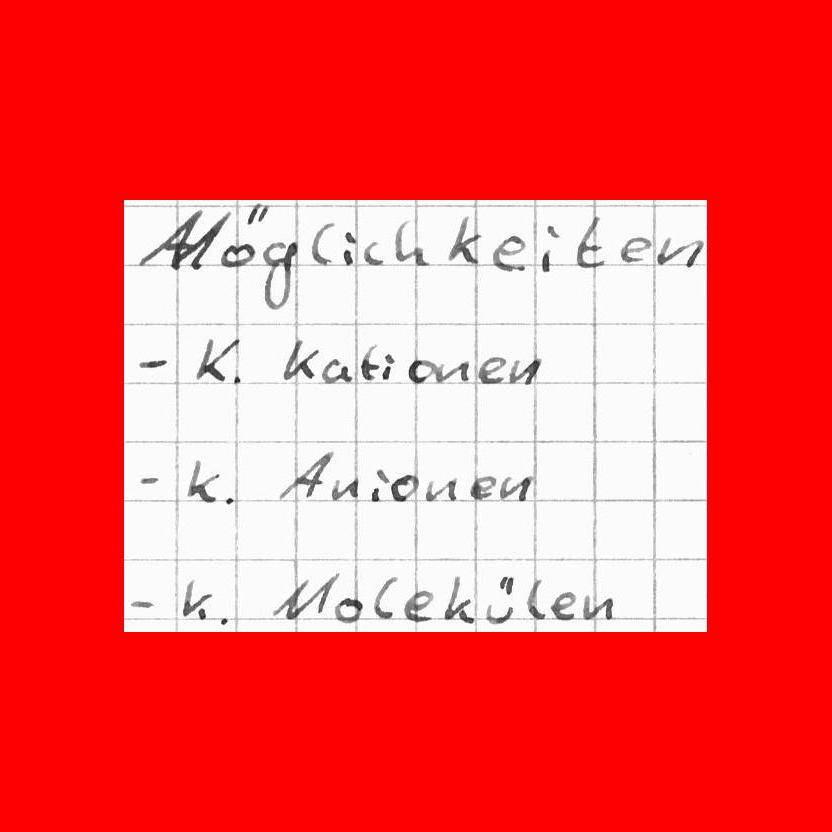 Möglichkeiten
- K. Kationen
- K. Anionen
- K. Molekülen